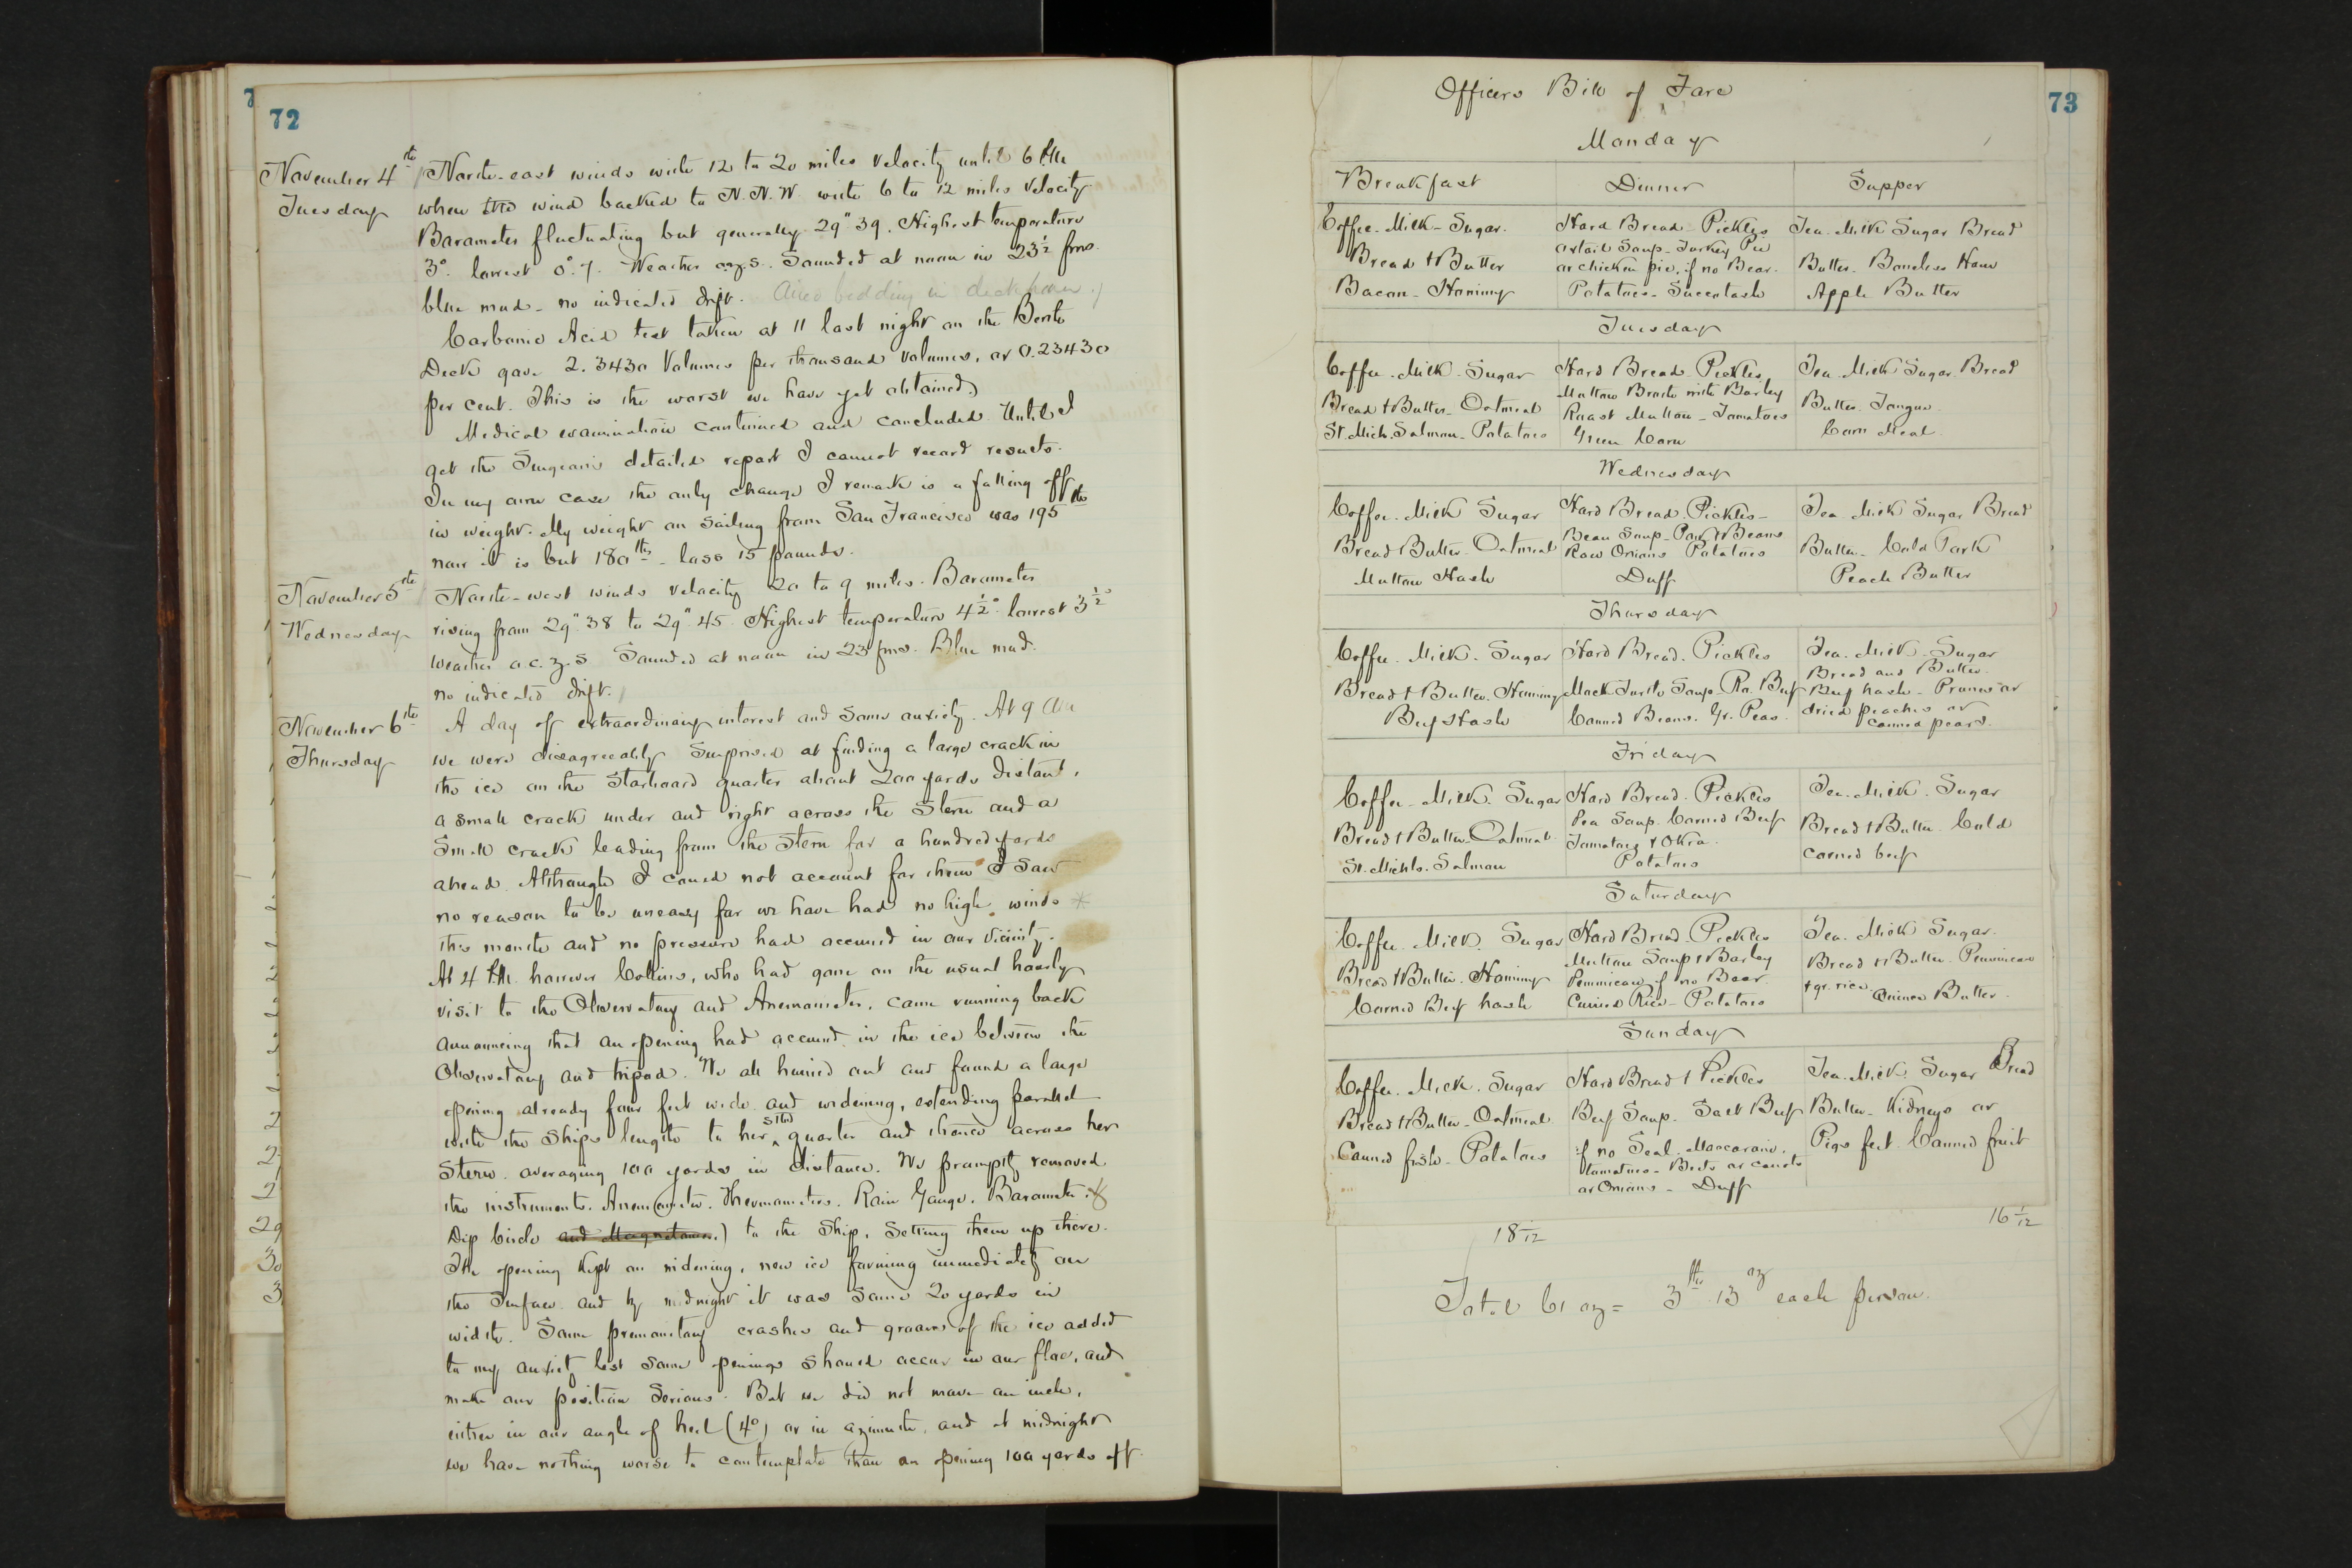 72
November 4th
Tuesday
North-east winds with 12 to 20 miles velocity until 6 P.M.
when the wind backed to N.N.W. with 6 to 12 miles velocity
Barometer fluctuating but generally 29" 39. Highest temperature
3° lowest 0°.7. Weather o.z.s. Sounded at noon in 23½ fms.
blue mud - no indicated drift. Aired bedding in deck house.
Carbonic Acid test taken at 11 last night on the Berth
Deck gave 2.3430 Volumes per thousand Volumes, or 0.23430
per cent. This is the worst we have yet obtained.
Medical examination continued and concluded. Until I
get the Surgeon's detailed report I cannot record results.
In my own case the only change I remark is a falling off
in weight. My weight on sailing from San Francisco was 195 lbs
now it is but 180 lbs - loss 15 pounds.
November 5th
Wednesday
North-west winds velocity 20 to 9 miles. Barometer
rising from 29" 38 to 29" 45. Highest temperature 4½° lowest 3½°
weather o.c.z.s. Sounded at noon in 23 fms. Blue mud.
no indicated drift.
November 6th
Thursday
A day of extraordinary interest and some anxiety. At 9 AM
we were disagreeably surprised at finding a large crack in
the ice on the starboard quarter about 200 yards distant,
a small crack under and right across the stern and a
small crack leading from the stern for a hundred yards
ahead. Although I could not account for them I saw
no reason to be uneasy for we have had no high winds *
this month and no pressure had occurred in our vicinity.
At 4 P.M. however Collins, who had gone on the usual hourly
visit to the Observatory and Anemometer, came running back
announcing that an opening had occurred in the ice between the
Observatory and tripod. We all hurried out and found a large
opening already four feet wide and widening, extending parallel
with the ship's length to her stbd quarter and thence across her
stern averaging 100 yards in distance. We promptly removed
the instruments. Anemometer. Thermometers. Rain Gauge. Barometer. &
Dip Circle and Magnetometer.) to the ship, setting them up there.
The opening kept on widening, new ice forming immediately on
the surface and by midnight it was some 20 yards in
width. Some premonitory crashes and groans of the ice added
to my anxiety lest some openings should occur in our floe, and
make our position serious. But we did not move an inch,
either in our angle of heel (4°) or in azimuth, and at midnight
we have nothing worse to contemplate than an opening 100 yards off.
73
Officers Bill of Fare
Monday
Breakfast Dinner Supper
Coffee. Milk - Sugar.
Bread & Butter
Bacon - Hominy
Hard Bread - Pickles
oxtail Soup - Turkey Pie
or chicken pie, if no Bear.
Potatoes - Succotash
Tea. Milk Sugar Bread
Butter - Boneless Ham
Apple Butter
Tuesday
Coffee. Milk. Sugar
Bread & Butter - Oatmeal
St. Mich. Salmon - Potatoes
Hard Bread - Pickles
Mutton Broth with Barley
Roast Mutton - Tomatoes
Green Corn
Tea. Milk Sugar. Bread
Butter. Tongue.
Corn Meal.
Wednesday
Coffee. Milk Sugar
Bread Butter - Oatmeal
Mutton Hash
Hard Bread. Pickles -
Bean Soup - Pork & Beans
Raw Onions Potatoes
Duff.
Tea Milk Sugar Bread
Butter - Cold Pork
Peach Butter
Thursday
Coffee. Milk. Sugar
Bread & Butter. Hominy
Beef Hash
Hard Bread. Pickles
Mock Turtle Soup - Ro. Beef
Canned Beans. Gr. Peas.
Tea. Milk. Sugar
Bread and Butter.
Beef hash - Prunes or
dried peaches or
canned pears.
Friday
Coffee - Milk. Sugar
Bread & Butter - Oatmeal.
St. Michls. Salmon
Hard Bread. Pickles
Pea Soup. Corned Beef
Tomatoes & Okra.
Potatoes
Tea. Milk. Sugar
Bread & Butter. Cold
corned beef
Saturday
Coffee. Milk. Sugar
Bread & Butter. Hominy
Corned Beef hash
Hard Bread - Pickles
Mutton Soup & Barley
Pemmican if no Bear.
Curried Rice - Potatoes
Tea. Milk Sugar.
Bread & Butter. Pemmican
& gr. rice Quince Butter.
Sunday
Coffee. Milk. Sugar
Bread & Butter - Oatmeal.
Canned fish - Potatoes
Hard Bread & Pickles
Beef Soup - Salt Beef
if no Seal. Maccaroni.
tomatoes - Beets or carrots
or Onions - Duff
Tea. Milk. Sugar Bread
Butter - Kidneys or
Pigs feet. Canned fruit
16 1/12
Total 61 oz = 3 lbs 13 oz each person.